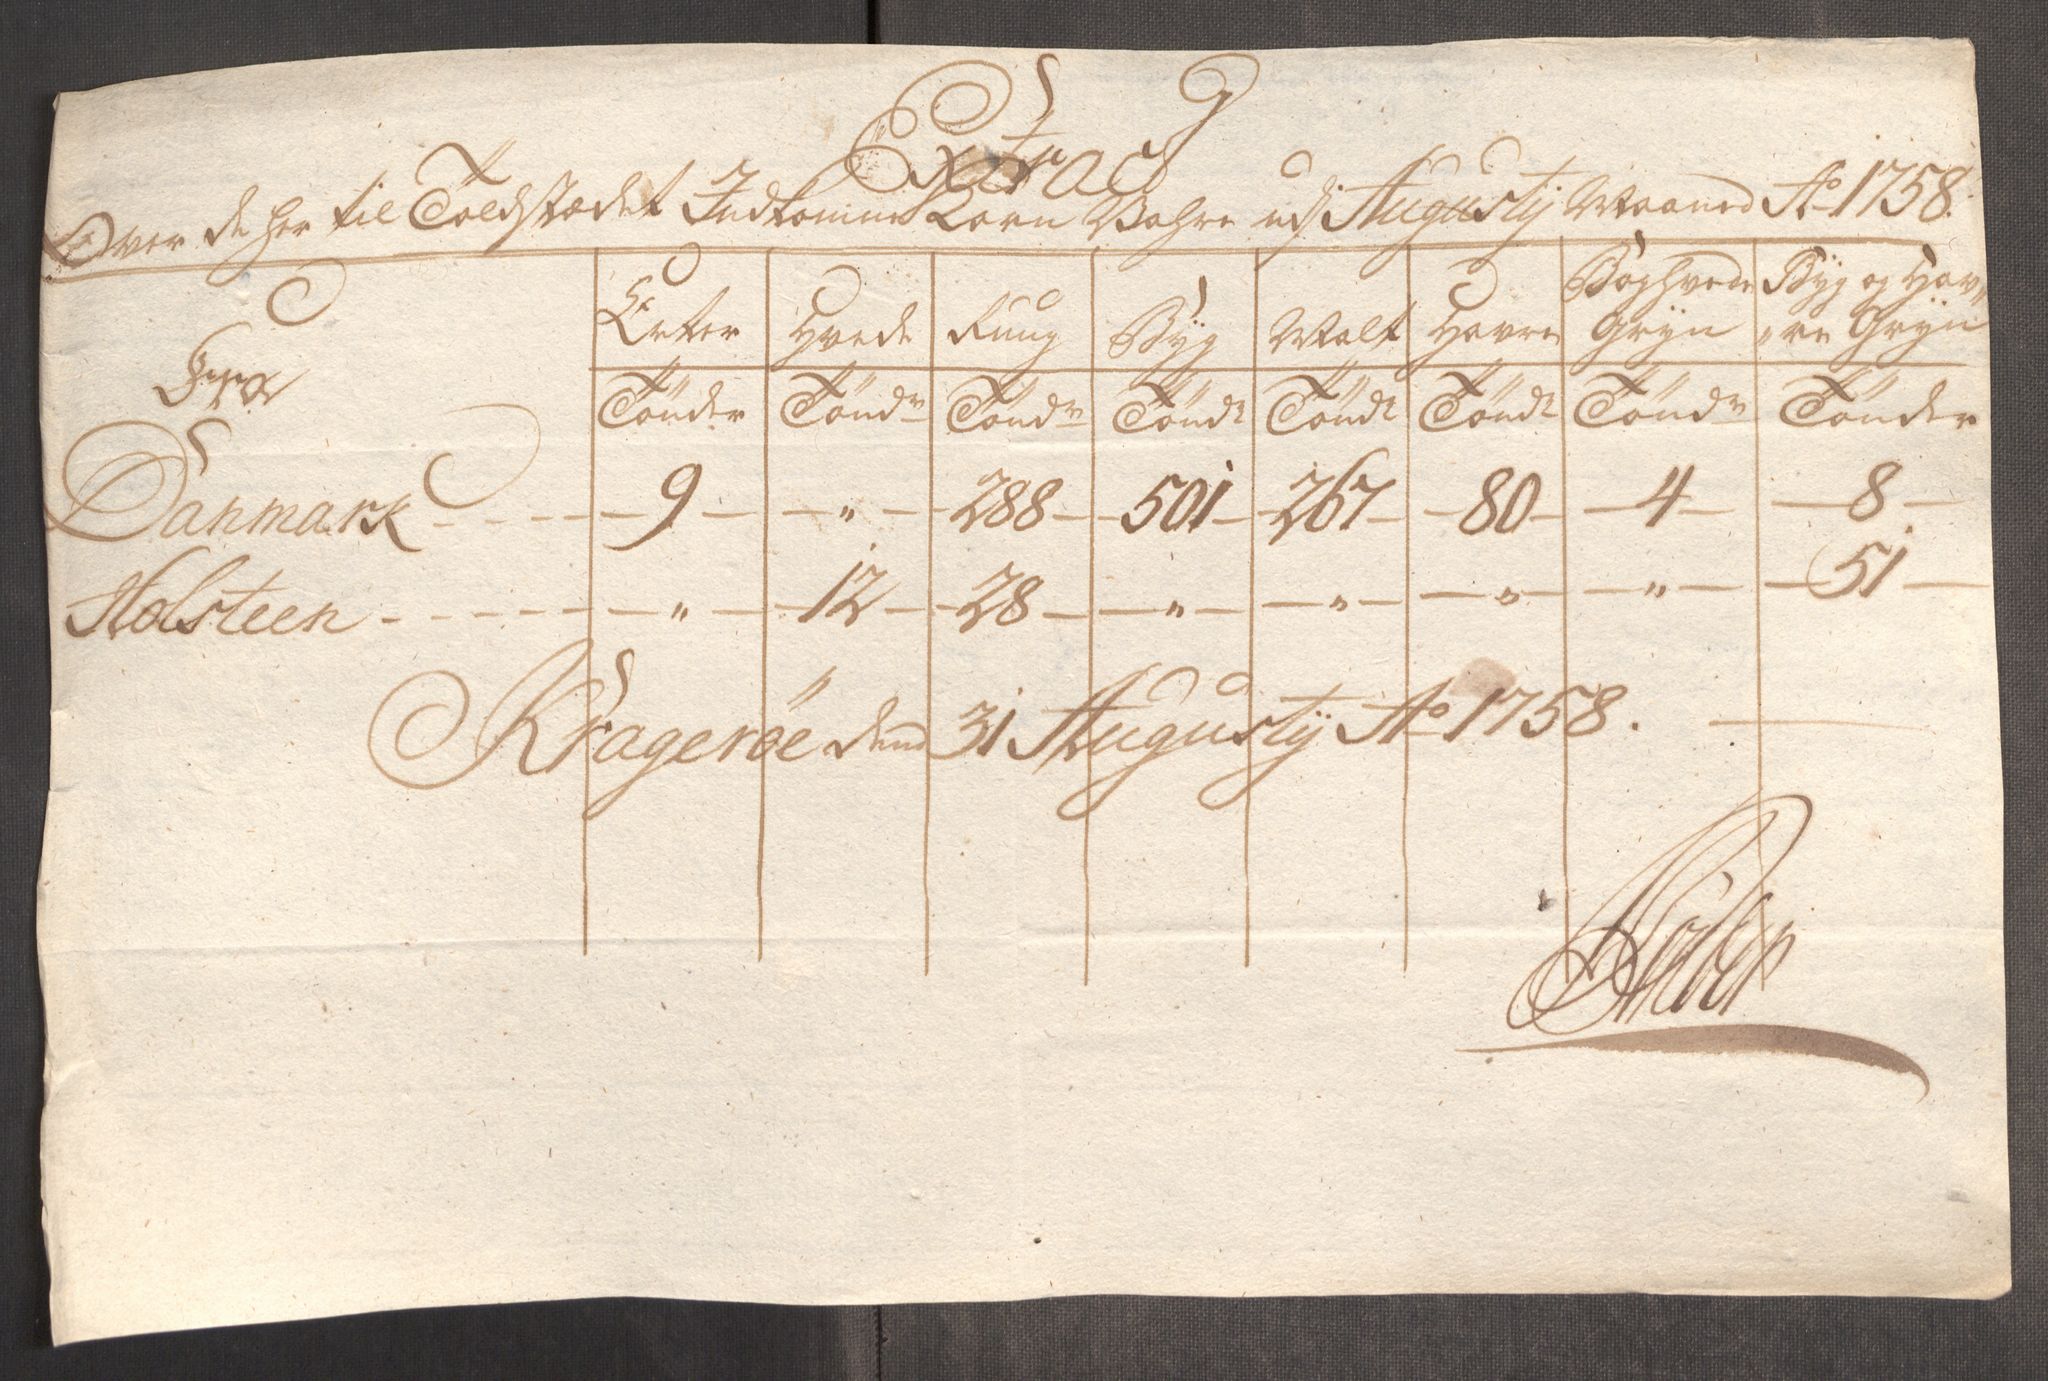 Extract
Over de her til Toldstædet Indkomne Korn Vahre udj Augustij Maaned Ao 1758.
Fra
Erter Hvede Rug Byg Malt Havre Boghvede Gryn Byg og Hav,,
,,re Gryn
Tönder Töndr Töndr Tönd Tönd Tönd Töndr Tönder
Danmark - - - - 9 - - " - 288 - 501 - 267 - 80 - 4 - 8 -
Holsteen - - - - - " - 12 - 28 - - " - - " - - " - - " - 51 -
Kragerøe dend 31 Augustij Ao 1758.